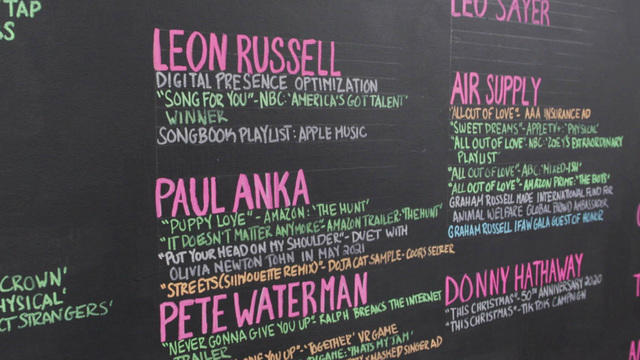 TAP
LEON RUSSELL
DIGITAL PRESENCE OPTIMIZATION
"SONG FOR YOU"-NBC: 'AMERICA'S GOT TALENT'
WINNER
SONGBOOK PLAYLIST: APPLE MUSIC
PAUL ANKA
"PUPPY LOVE" - AMAZON: 'THE HUNT'
"IT DOESN'T MATTER ANYMORE" - AMAZON TRAILER: 'THE HUNT'
"PUT YOUR HEAD ON MY SHOULDER" - DUET WITH
OLIVIA NEWTON JOHN IN MAY 2021
"STREETS (SILHOUETTE REMIX)" - DOJA CAT SAMPLE - COORS SELTZER
PETE WATERMAN
"NEVER GONNA GIVE YOU UP" - RALPH BREAKS THE INTERNET
TRAILER
YOU UP" - 'TOGETHER' VR GAME
GAME: 'THAT'S MY JAM'
MASKED SINGER AD
CROWN'
PHYSICAL'
CT STRANGERS'
LEO SAYER
AIR SUPPLY
"ALL OUT OF LOVE" - AAA INSURANCE AD
"SWEET DREAMS" - APPLE TV+: 'PHYSICAL'
"ALL OUT OF LOVE": NBC: 'ZOEY'S EXTRAORDINARY
PLAYLIST'
"ALL OUT OF LOVE" - ABC: 'MIXED-ISH'
"ALL OUT OF LOVE" - AMAZON PRIME: 'THE BOYS'
GRAHAM RUSSELL MADE INTERNATIONAL FUND FOR
ANIMAL WELFARE GLOBAL AMBASSADOR
GRAHAM RUSSELL IFAW GALA GUEST OF HONOR
DONNY HATHAWAY
"THIS CHRISTMAS" - 50TH ANNIVERSARY 2020
"THIS CHRISTMAS" - TIK TOK CAMPAIGN